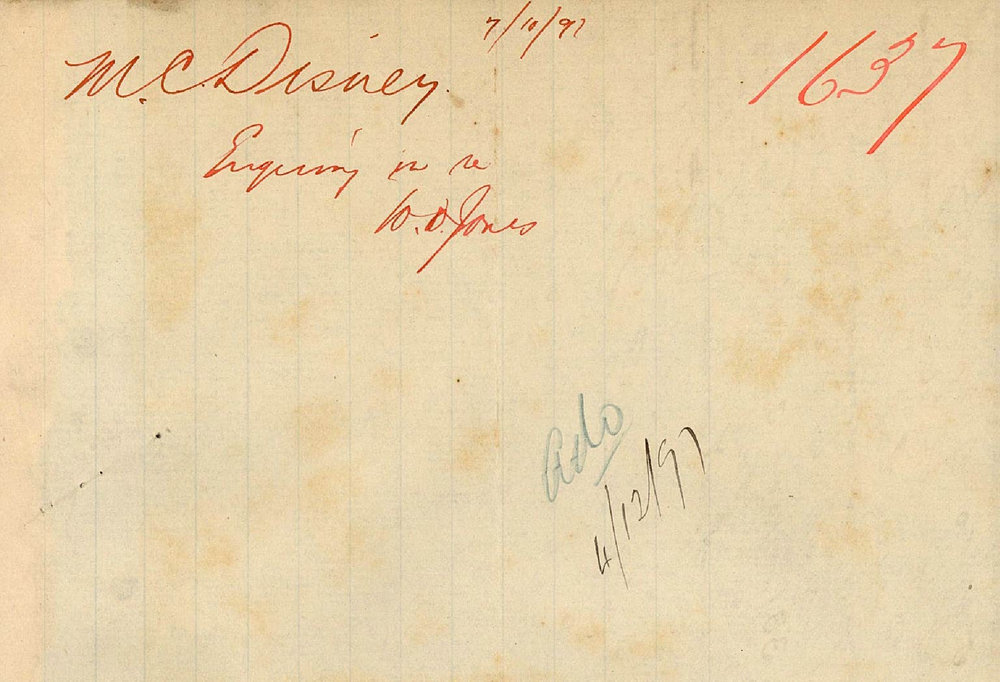 7/10/97
M.C. Disney.
1637
Enquiring in re
W.D. Jones
4/12/97